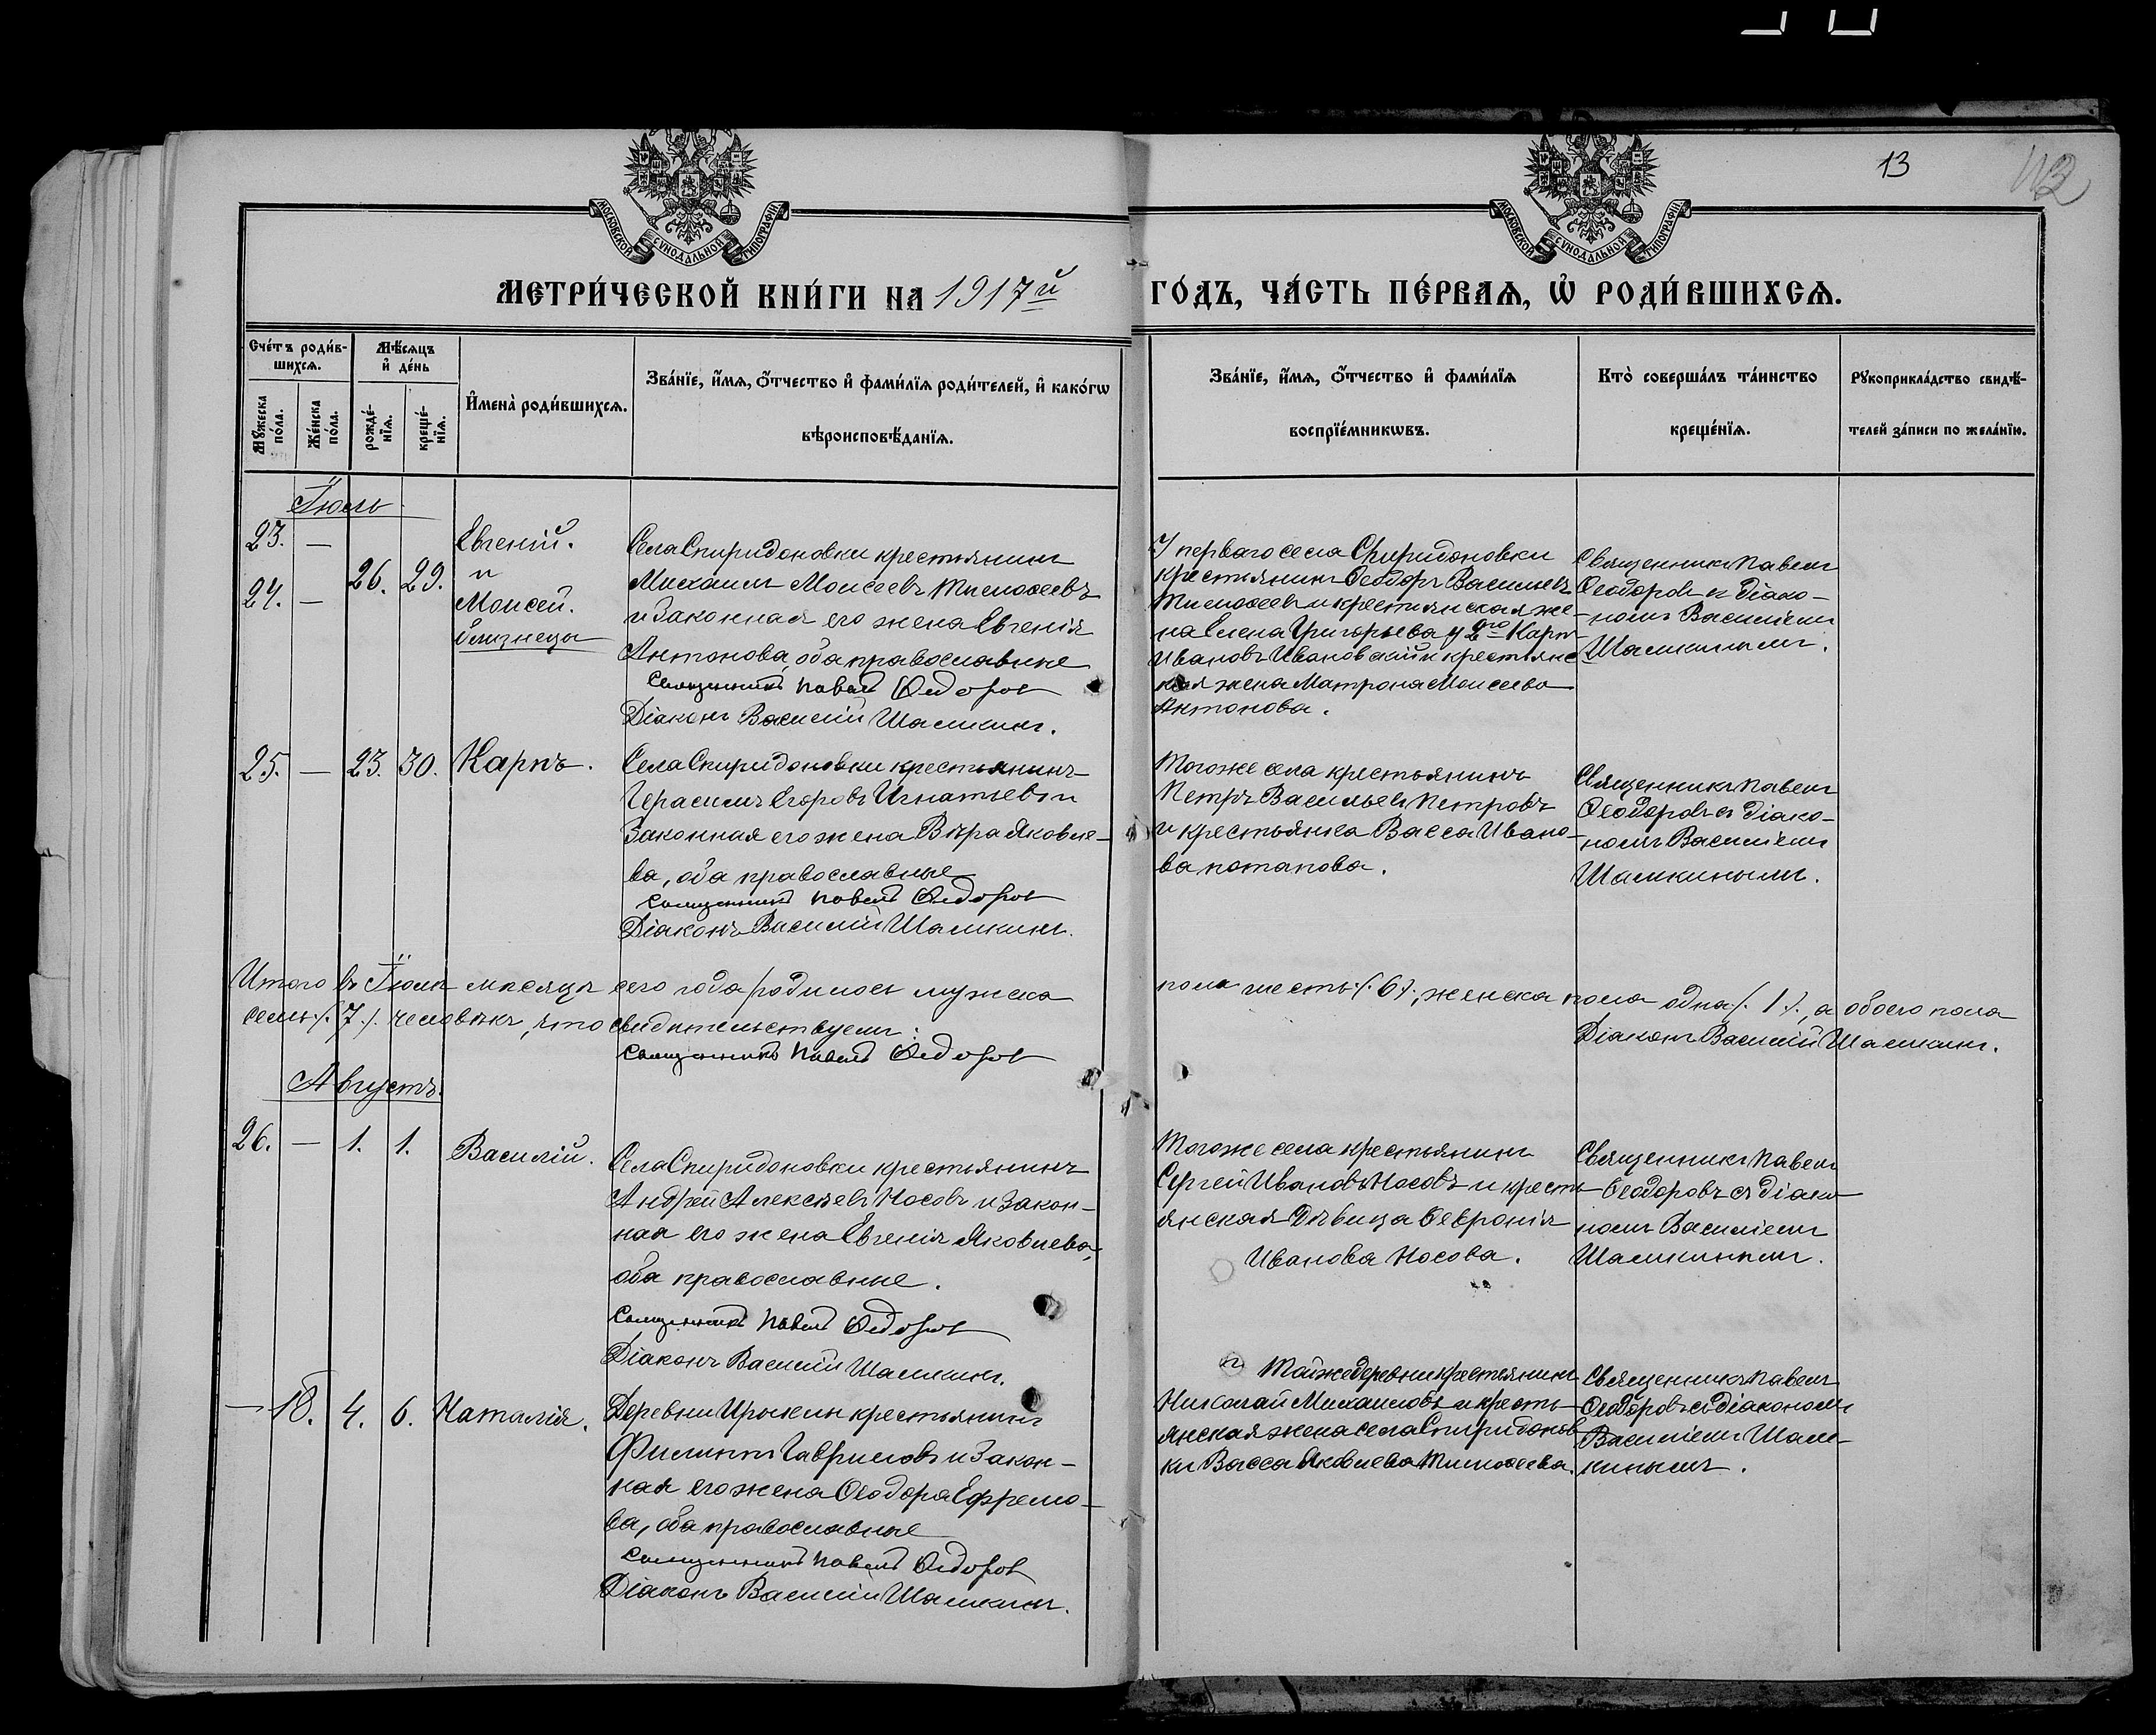 13
112
МОСКОВСКОЙ СѴНОДАЛЬНОЙ ТИПОГРАФІИ
МОСКОВСКОЙ СѴНОДАЛЬНОЙ ТИПОГРАФІИ
МЕТРИ́ЧЕСКОЙ КНИ́ГИ НА 1917й ГО́ДЪ, ЧА́СТЬ ПЕ́РВАЯ, Ѡ҆ РОДИ́ВШИХСЯ.
Сче́тъ роди́в-
шихся.
Мꙋ́жеска по́ла.
Же́нска по́ла.
Мѣ́сяцъ
и҆ де́нь
рожде́-
нїя.
креще́-
нїя.
И҆мена̀ роди́вшихся.
Зва́нїе, и҆́мя, ѻ҆́тчество и҆ фами́лїя роди́телей, и҆ како́гѡ
вѣроисповѣ́данїя.
Зва́нїе, и҆́мя, ѻ҆́тчество и҆ фами́лїя
воспрїе́мникѡвъ.
Кто̀ соверша́лъ та́инство
креще́нїя.
Рꙋкоприкла́дство свидѣ́-
телей за́писи по жела́нїю.
Іюль
23. —
24. —
26. 29.
Евгеній.
и
Моисей.
близнецы
Села Спиридоновки крестьянинъ
Михаилъ Моисеевъ Тимоѳеевъ
и законная его жена Евгенія
Антонова, оба православные
Священникъ Павелъ Ѳедоров
Діаконъ Василій Шамкинъ.
У перваго села Спиридоновки
крестьянинъ Ѳеодоръ Васильевъ
Тимоѳеевъ и крестьянская же-
на Елена Григорьева у 2го Карп
Ивановъ Ивановскій и крестьянс-
кая жена Матрона Моисеева
Антонова.
Священникъ Павелъ
Ѳеодоровъ съ діако-
номъ Василіемъ
Шамкинымъ.
25. — 23. 30. Карпъ.
Села Спиридоновки крестьянинъ
Герасимъ Егоровъ Игнатьевъ и
законная его жена Вѣра Яковле-
ва, оба православные
Священникъ Павелъ Ѳедоров
Діаконъ Василій Шамкинъ.
Того же села крестьянинъ
Петръ Васильевъ Петровъ
и крестьянка Васса Ивано-
ва Потапова.
Священникъ Павелъ
Ѳеодоровъ съ діако-
номъ Василіемъ
Шамкинымъ.
Итого въ Іюлѣ мѣсяцѣ сего года родилось мужска пола шесть /. 6 /., женска пола одна /. 1 /., а обоего пола
семь /. 7 /. человѣкъ, что свидѣтельствуемъ:
Священникъ Павелъ Ѳедоров
Діаконъ Василій Шамкинъ.
Августъ.
26. — 1. 1. Василій.
Села Спиридоновки крестьянинъ
Андрей Алексѣевъ Носовъ и закон-
ная его жена Евгенія Яковлева,
оба православные.
Священникъ Павелъ Ѳедоров
Діаконъ Василій Шамкинъ.
Того же села крестьянинъ
Сергей Ивановъ Носовъ и кресть-
янская дѣвица Ѳевронія
Иванова Носова.
Священникъ Павелъ
Ѳеодоровъ съ діако
номъ Василіемъ
Шамкинымъ.
— 18. 4. 6. Наталія.
Деревни крестьянинъ
Филиппъ Гавриловъ и закон-
ная его жена Ѳеодора Ефремо-
ва, оба православные
Священникъ Павелъ Ѳедоров
Діаконъ Василій Шамкинъ.
Той же деревни крестьянинъ
Николай Михаиловъ и кресть-
янская жена села Спиридонов
ки Васса Яковлева Тимоѳеева.
Священникъ Павелъ
Ѳеодоровъ съ діакономъ
Василіемъ Шам-
кинымъ.